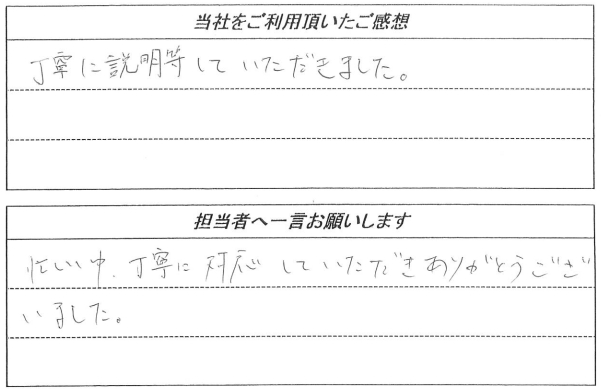 当社をご利用頂いたご感想
丁寧に説明等していただきました。
担当者へ一言お願いします
忙しい中、丁寧に対応していただきありがとうござ
いました。